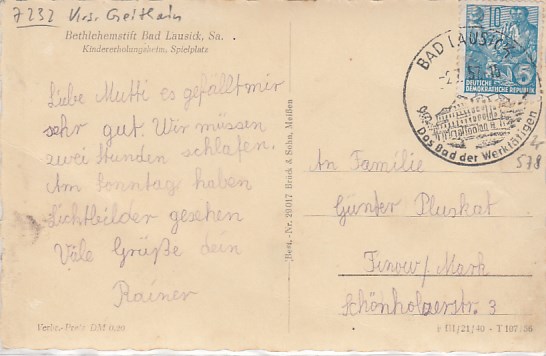 7232 Krs. Geithain
Bethlehemstift Bad Lausick, Sa.
Kindererholungsheim, Spielplatz
Liebe Mutti es gefällt mir
sehr gut. Wir müssen
zwei Stunden schlafen.
Am Sonntag haben
Lichtbilder gesehen
Viele Grüße dein
Rainer
Verbr.-Preis DM 0,20
Best.-Nr. 29017 Brück & Sohn, Meißen
10
5
DEUTSCHE
DEMOKRATISCHE REPUBLIK
BAD LAUSICK
Das Bad der Werktätigen
578
An Familie
Günter Pluskat
Finow/Mark
Schönholzerstr. 3
III/21/40 - T 107/56